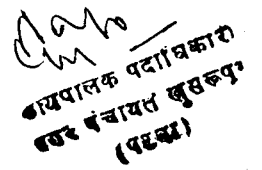 कार्यपालक पदाधिकारी
नगर पंचायत खुसरूपुर
(पटना)